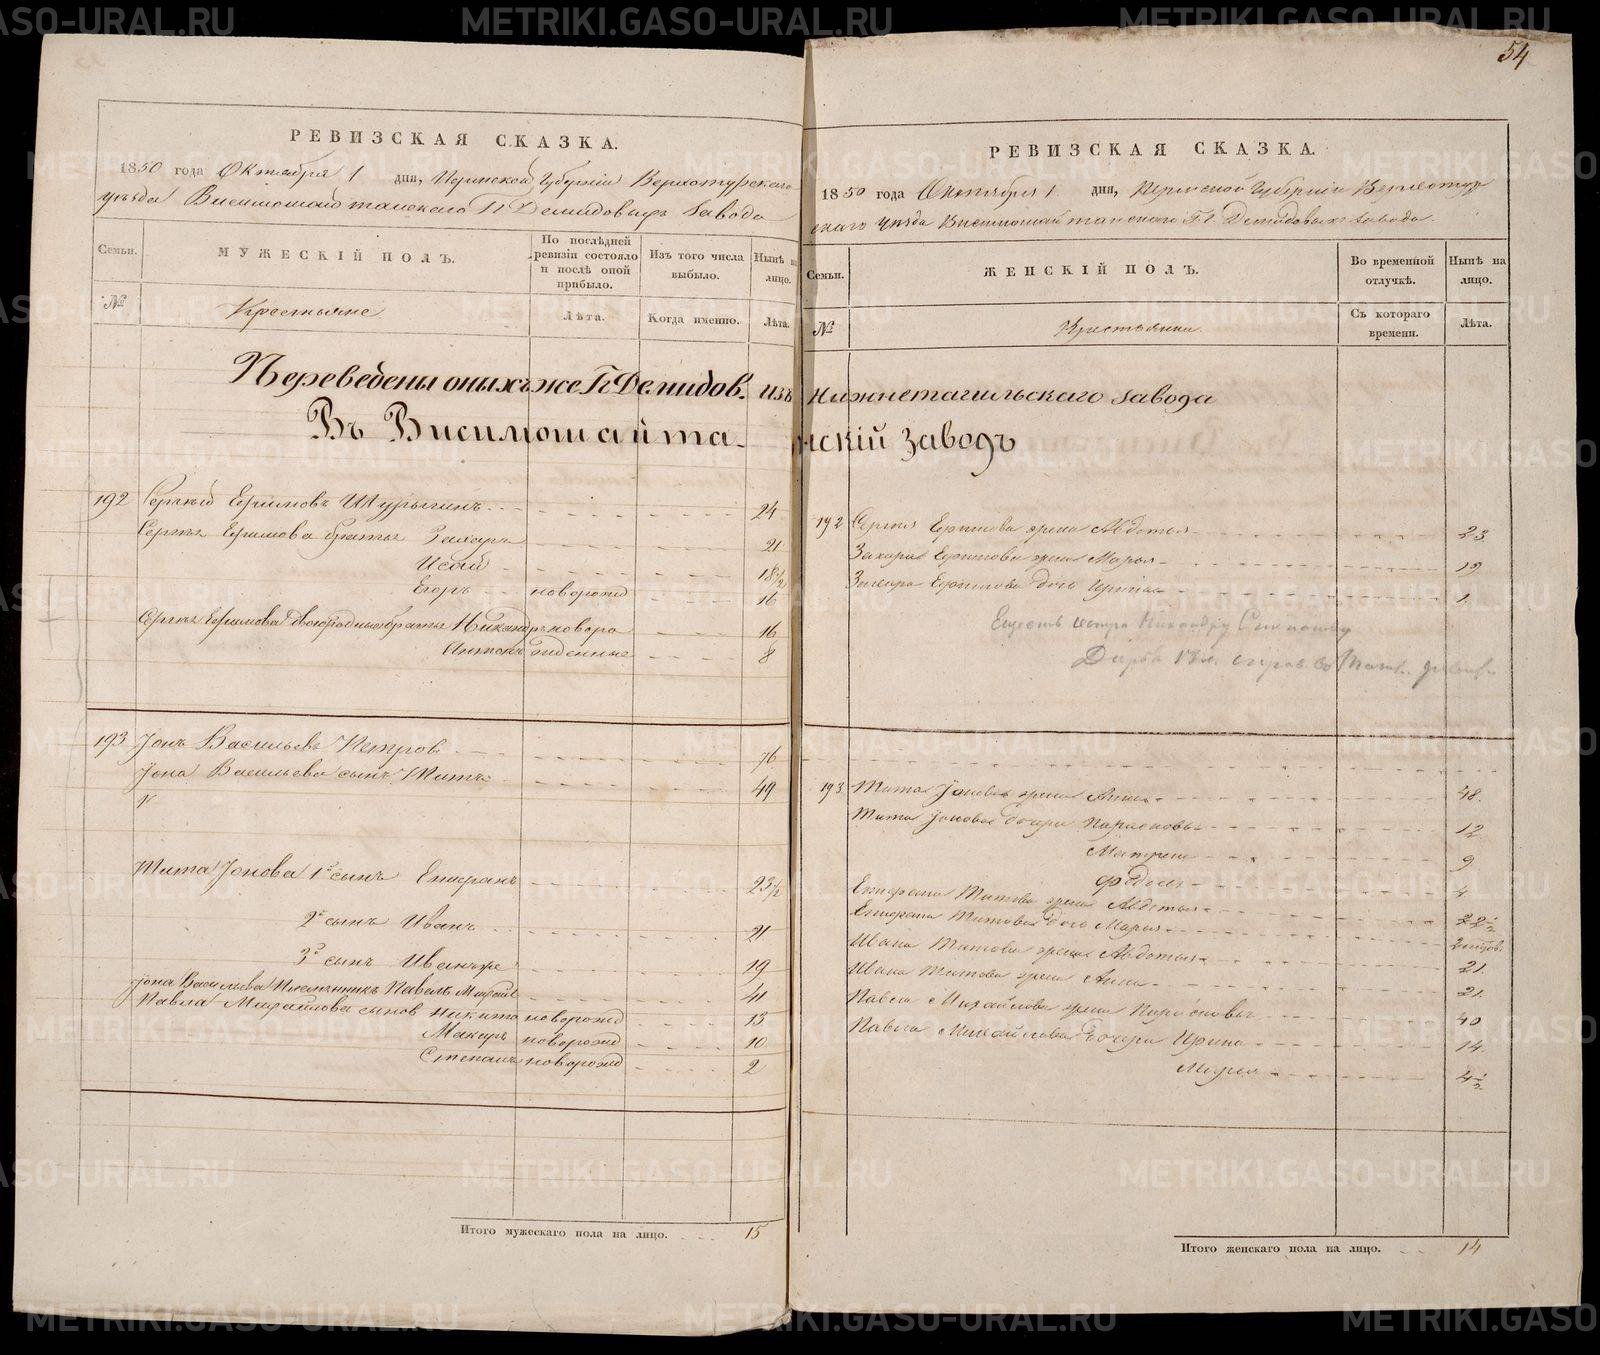 54
РЕВИЗСКАЯ СКАЗКА.
1850 года Октября 1 дня, Пермской Губернiи Верхотурскаго
уѣзда Висимошайтанскаго Гг Демидовыхъ завода
Семьи.
МУЖЕСКIЙ ПОЛЪ.
По послѣдней ревизiи состояло и послѣ оной прибыло.
Изъ того числа выбыло.
Нынѣ на лицо.
№
Крестьяне
Лѣта.
Когда именно.
Лѣта.
Переведены оныхъ же Гг Демидов. изъ Нижнетагильскаго завода
Въ Висимошайтанскiй заводъ
192 Сергѣй Ефимовъ Шурыгинъ 24
Сергѣя Ефимова братья Захаръ 21
Исай 18 1/2
Егоръ новорожд 16
Сергѣя Ефимова двоюродные братья Никандръ новоро 16
Антонъ жденные 8
193 Iонъ Васильевъ Петров 76
Iона Васильева сынъ Титъ 49
Тита Iонова 1й сынъ Епифанъ 23 1/2
2й сынъ Иванъ 21
3й сынъ Иванъ же 19
Iона Васильева племянникъ Павелъ Михайл 41
Павла Михайлова сынов Никита новорожд 13
Макаръ новорожд 10
Степанъ новорожд 2
Итого мужескаго пола на лицо. 15
РЕВИЗСКАЯ СКАЗКА.
1850 года Октября 1 дня, Пермской Губернiи Верхотур
скаго уѣзда Висимошайтанскаго Гг. Демидовыхъ завода
Семьи.
ЖЕНСКIЙ ПОЛЪ.
Во временной отлучкѣ.
Нынѣ на лицо.
№
Крестьянки
Съ котораго времени.
Лѣта.
192 Сергѣя Ефимова жена Авдотья 23
Захара Ефимова жена Марья 19
Захара Ефимова дочь Ирина 1
Ещесть сестра Никандру
Дарья
193 Тита Iонова жена Анна 48
Тита Iонова дочери Парасковья 12
Матрена 9
Федосья 4
Епифана Титова жена Авдотья 22 1/2
Епифана Титова дочь Марья
Ивана Титова жена Авдотья 21
Ивана Титова жена Анна 21
Павла Михайлова жена Парасковья 40
Павла Михайлова дочери Ирина 14
Марья 4 1/2
Итого женскаго пола на лицо. 14
METRIKI.GASO-URAL.RU